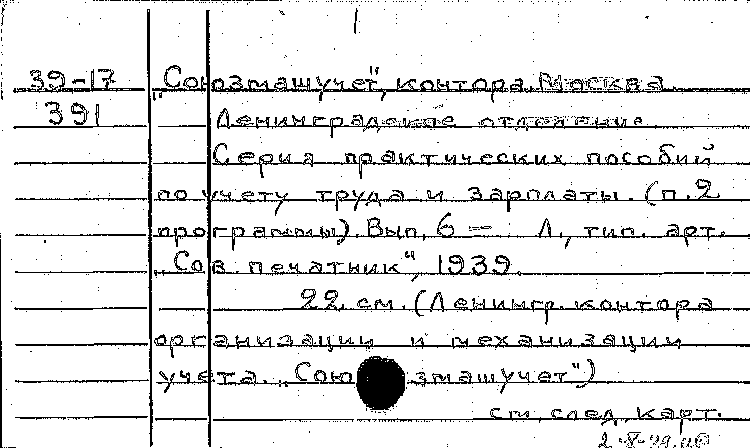 39-17 „Союзмашучет", контора. Москва.
391 Ленинградское отделение.
Серия практических пособий
по учету труда и зарплаты. (п.2
программы). Вып. 6 — Л., тип. арт.
„Сов. печатник", 1939.
22 см. (Ленингр. контора
организации и механизации
учета. „Союзмашучет")
см. след. карт.